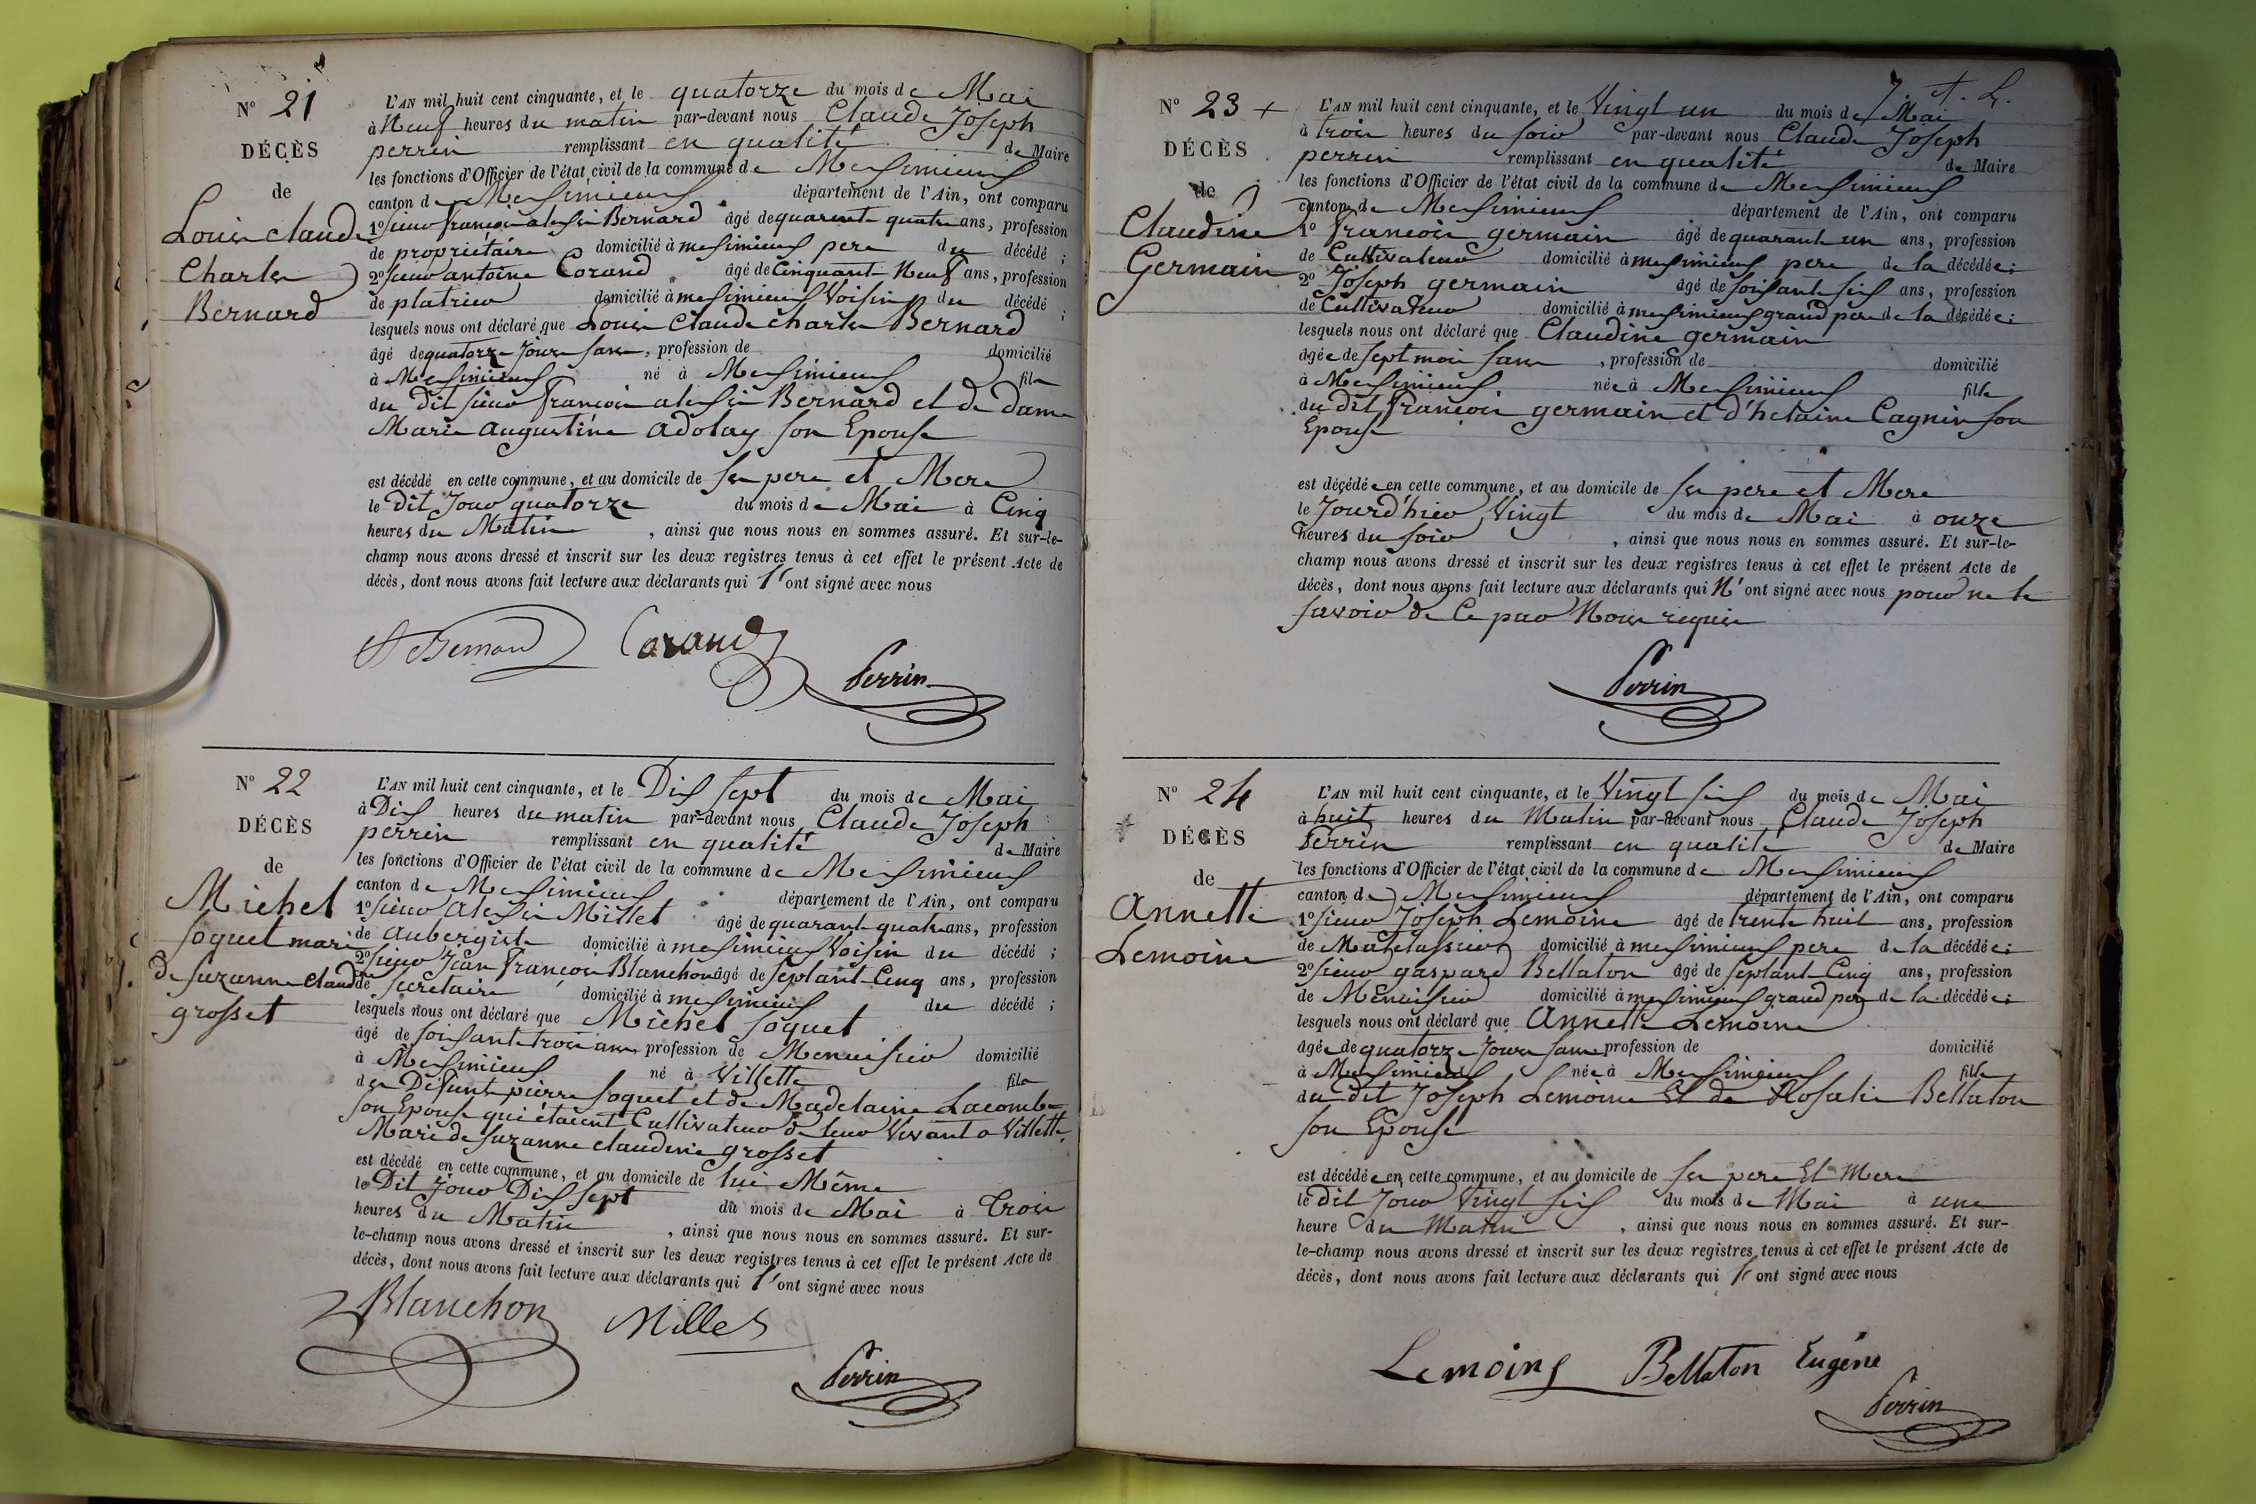 N° 21
DÉCÈS
de
Louis Claude
Charles
Bernard
L'AN mil huit cent cinquante, et le quatorze du mois de Mai
à Neuf heures du matin par-devant nous Claude Joseph
perrin remplissant en qualité de Maire
les fonctions d'Officier de l'état civil de la commune de Meximieux
canton de Meximieux département de l'Ain, ont comparu
1° sieur françois alexis Bernard âgé de quarente quatre ans, profession
de propriétaire domicilié à meximieux pere du décédé ;
2° sieur antoine Corand âgé de Cinquante Neuf ans, profession
de platrier domicilié à meximieux Voisin du décédé ;
lesquels nous ont déclaré que Louis Claude charles Bernard
âgé de quatorze jours sans, profession de domicilié
à Meximieux né à Meximieux fils
du dit sieur françois alexis Bernard et de dame
Marie augustine adolay son Epouse
est décédé en cette commune, et au domicile de ses pere et Mere
le Dit Jour quatorze du mois de Mai à Cinq
heures du Matin , ainsi que nous nous en sommes assuré. Et sur-le-
champ nous avons dressé et inscrit sur les deux registres tenus à cet effet le présent Acte de
décès, dont nous avons fait lecture aux déclarants qui l'ont signé avec nous
A Bernard Corand
Perrin
N° 22
DÉCÈS
de
Michel
soquet mari
de suzanne claudine
grosset
L'AN mil huit cent cinquante, et le Dix sept du mois de Mai
à Dix heures du matin par-devant nous Claude Joseph
perrin remplissant en qualité de Maire
les fonctions d'Officier de l'état civil de la commune de Meximieux
canton de Meximieux département de l'Ain, ont comparu
1° sieur alexis Millet âgé de quarante quatre ans, profession
de aubergiste domicilié à meximieux Voisin du décédé ;
2° sieur Jean françois Blanchon âgé de septante Cinq ans, profession
de secretaire domicilié à meximieux du décédé ;
lesquels nous ont déclaré que Michel soquet
âgé de soixante trois ans, profession de Menuisier domicilié
à Meximieux né à Villette fils
de Defunt pierre soquet et de Madelaine Lacombe
son Epouse qui étaient Cultivateur de leur Vivant a Villette,
Mari de suzanne claudine grosset
est décédé en cette commune, et au domicile de lui Même
le Dit Jour Dix sept du mois de Mai à trois
heures du Matin , ainsi que nous nous en sommes assuré. Et sur-
le-champ nous avons dressé et inscrit sur les deux registres tenus à cet effet le présent Acte de
décès, dont nous avons fait lecture aux déclarants qui l'ont signé avec nous
Blanchon Millet
Perrin
N° 23 +
DÉCÈS
de
Claudine
Germain
L'AN mil huit cent cinquante, et le Vingt un du mois de Mai
à trois heures du soir par-devant nous Claude Joseph
perrin remplissant en qualité de Maire
les fonctions d'Officier de l'état civil de la commune de Meximieux
canton de Meximieux département de l'Ain, ont comparu
1° francois germain âgé de quarante un ans, profession
de Cultivateur domicilié à meximieux pere de la décédée ;
2° Joseph germain âgé de soixante six ans, profession
de Cultivateur domicilié à meximieux grand pere de la décédée ;
lesquels nous ont déclaré que Claudine germain
âgée de sept mois sans , profession de domicilié
à Meximieux née à Meximieux fille
du dit françois germain et d'helaine Cagnin son
Epouse
est décédée en cette commune, et au domicile de ses pere et Mere
le Jourd'hier Vingt du mois de Mai à onze
heures du soir , ainsi que nous nous en sommes assuré. Et sur-le-
champ nous avons dressé et inscrit sur les deux registres tenus à cet effet le présent Acte de
décès, dont nous avons fait lecture aux déclarants qui N'ont signé avec nous pour ne le
savoir de Ce par Nous requis
Perrin
N° 24
DÉCÈS
de
Annette
Lemoine
L'AN mil huit cent cinquante, et le Vingt six du mois de Mai
à huit heures du Matin par-devant nous Claude Joseph
Perrin remplissant en qualité de Maire
les fonctions d'Officier de l'état civil de la commune de Meximieux
canton de Meximieux département de l'Ain, ont comparu
1° sieur Joseph Lemoine âgé de trente huit ans, profession
de Matelassier domicilié à meximieux pere de la décédée ;
2° sieur gaspard Bellaton âgé de septante Cinq ans, profession
de Menuisier domicilié à meximieux grand pere de la décédée ;
lesquels nous ont déclaré que Annette Lemoine
âgée de quatorze Jours sans profession de domicilié
à Meximieux née à Meximieux fille
du dit Joseph Lemoine Et de Rosalie Bellaton
son Epouse
est décédée en cette commune, et au domicile de ses pere Et Mere
le dit Jour Vingt six du mois de Mai à une
heure du Matin , ainsi que nous nous en sommes assuré. Et sur-
le-champ nous avons dressé et inscrit sur les deux registres tenus à cet effet le présent Acte de
décès, dont nous avons fait lecture aux déclarants qui l'ont signé avec nous
Lemoine Bellaton Eugéne
Perrin